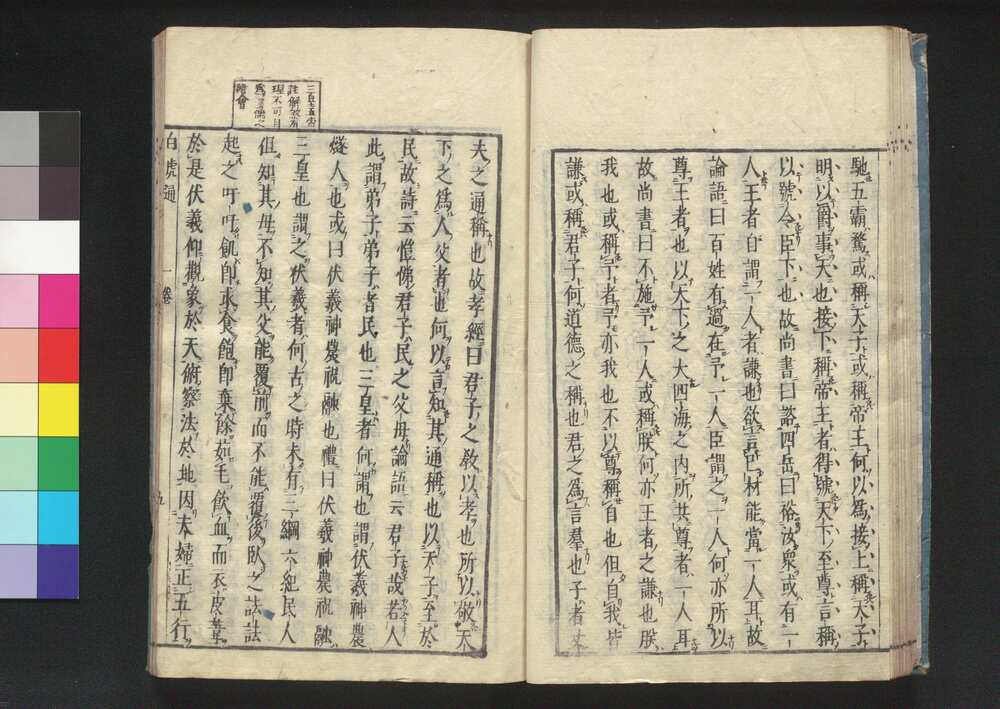 馳五霸騖或稱天子或稱帝王何以爲接上稱天子
明以爵事天也接下稱帝王者得號天下至尊言稱
以號令臣下也故尚書曰諮四岳曰裕汝衆或有一
人王者自謂一人者謙也欲言己材能當一人耳故
論語曰百姓有過在予一人臣謂之一人何亦所以
尊王者也以天下之大四海之内所共尊者一人耳
故尚書曰不施予一人或稱朕何亦王者之謙也朕
我也或稱予者予亦我也不以尊稱自也但自我皆
謙或稱君子何道德之稱也君之爲言羣也子者丈
夫之通稱也故孝經曰君子之敎以孝也所以敬天
下之爲人父者也何以言知其通稱也以天子至於
民故詩云愷悌君子民之父母論語云君子哉若人
此謂弟子弟子者民也三皇者何謂也謂伏羲神農
燧人也或曰伏羲神農祝融也禮曰伏羲神農祝融
三皇也謂之伏羲者何古之時未有三綱六紀民人
但知其母不知其父能覆前而不能覆後臥之詓詓
起之吁吁飢卽求食飽卽棄餘茹毛飮血而衣皮葦
於是伏羲仰觀象於天俯察法於地因夫婦正五行
白虎通 一卷 五
三皇五帝
註解故有
理不可目
爲
繪會